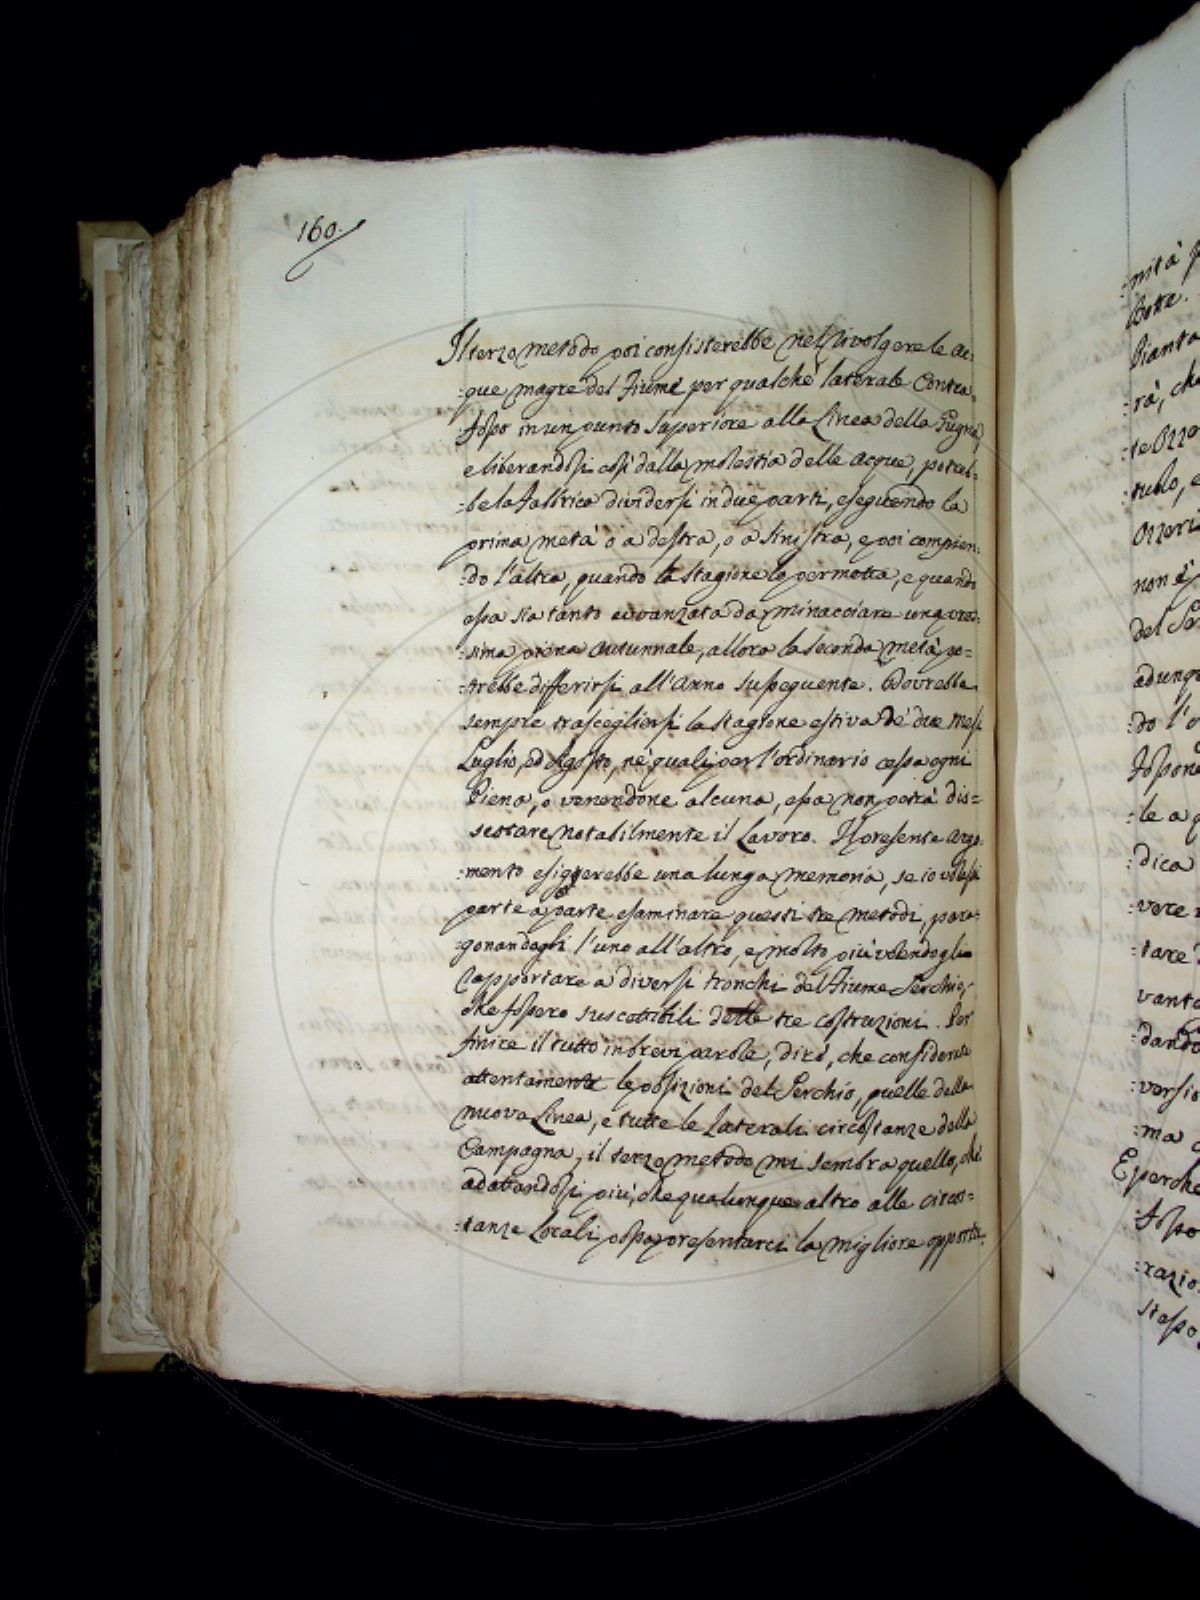 160.
Il terzo metodo poi consisterebbe nel rivolgere le ac:
:que magre del Fiume per qualche laterale Contra
fosso in un punto superiore alla Linea della Pugna,
e liberandosi così dalla molestia delle acque, potreb:
:be la fabbrica dividersi in due parti, eseguendo la
prima metà o a destra, o a sinistra, e poi compien:
:do l'altra, quando la stagione lo permetta, e quando
essa sia tanto avvanzata da minacciare una pros:
:sima piena autunnale, allora la seconda metà po=
:trebbe differirsi all'Anno susseguente. Dovrebbe
sempre trascegliersi la stagione estiva de' due mesi
Luglio, ed Agosto, ne' quali per l'ordinario cessa ogni
Piena, o venendone alcuna, essa non potrà dis=
sestare notabilmente il Lavoro. Il presente argo:
:mento esiggerebbe una lunga memoria, se io volessi
parte a parte esaminare questi tre metodi, para:
:gonandogli l'uno all'altro, e molto più volendogli
rapportare a diversi tronchi del Fiume Serchio,
che fossero suscettibili delle tre costruzioni. Per
finire il tutto in brevi parole, dirò, che considerate
attentamente le posizioni del Serchio, quelle della
nuova Linea, e tutte le Laterali circostanze della
Campagna, il terzo metodo mi sembra quello, che
adattandosi più, che qualunque altro alle circos=
:tanze Locali possa presentarci la migliore opportu:
:nità
Botte.
Pianta
:rà, che
:tulo, e
non è
del Ser
adunqu
:do l'o
:le a
:dica
:vere
:tare
vanta
:dando
:versio
:ma
E perche
fosso
:razio
stesso